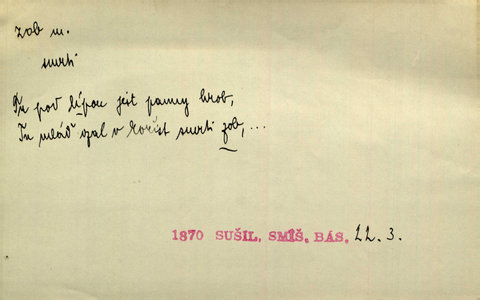 zob m.
smrti
Tu pod lípou jest panny hrob,
Tu mláď vzal v kořist smrti zob, ...
1870 SUŠIL, SMÍŠ. BÁS. 22. 3.